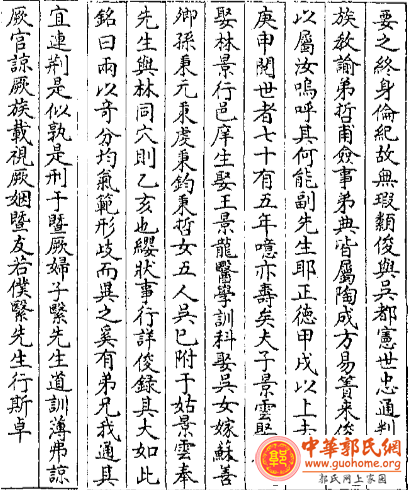 要之終身倫紀故無瑕纇俊與吳都憲世忠通判
族敘諭弟哲甫僉事弟典皆屬陶成方易簀来俊
以屬汝嗚呼其何能副先生耶正德甲戌以上去
庚申閱世者七十有五年噫亦壽矣夫子景雲娶
娶林景行邑庠生娶王景龍醫學訓科娶吳女嫁蘇善
卿孫秉元秉虔秉鈞秉哲女五人吳已附于姑景雲奉
先生與林同穴則乙亥也纓狀事行詳俊錄其大如此
銘曰兩以奇分均氣範形歧而異之奚有弟兄我通其
宜連荆是似孰是刑于暨厥婦子繄先生道訓薄弗諒
厥官諒厥族載視厥姻暨友若僕繄先生行斯卓
中華郭氏網
www.guohome.org
郭氏网上家園